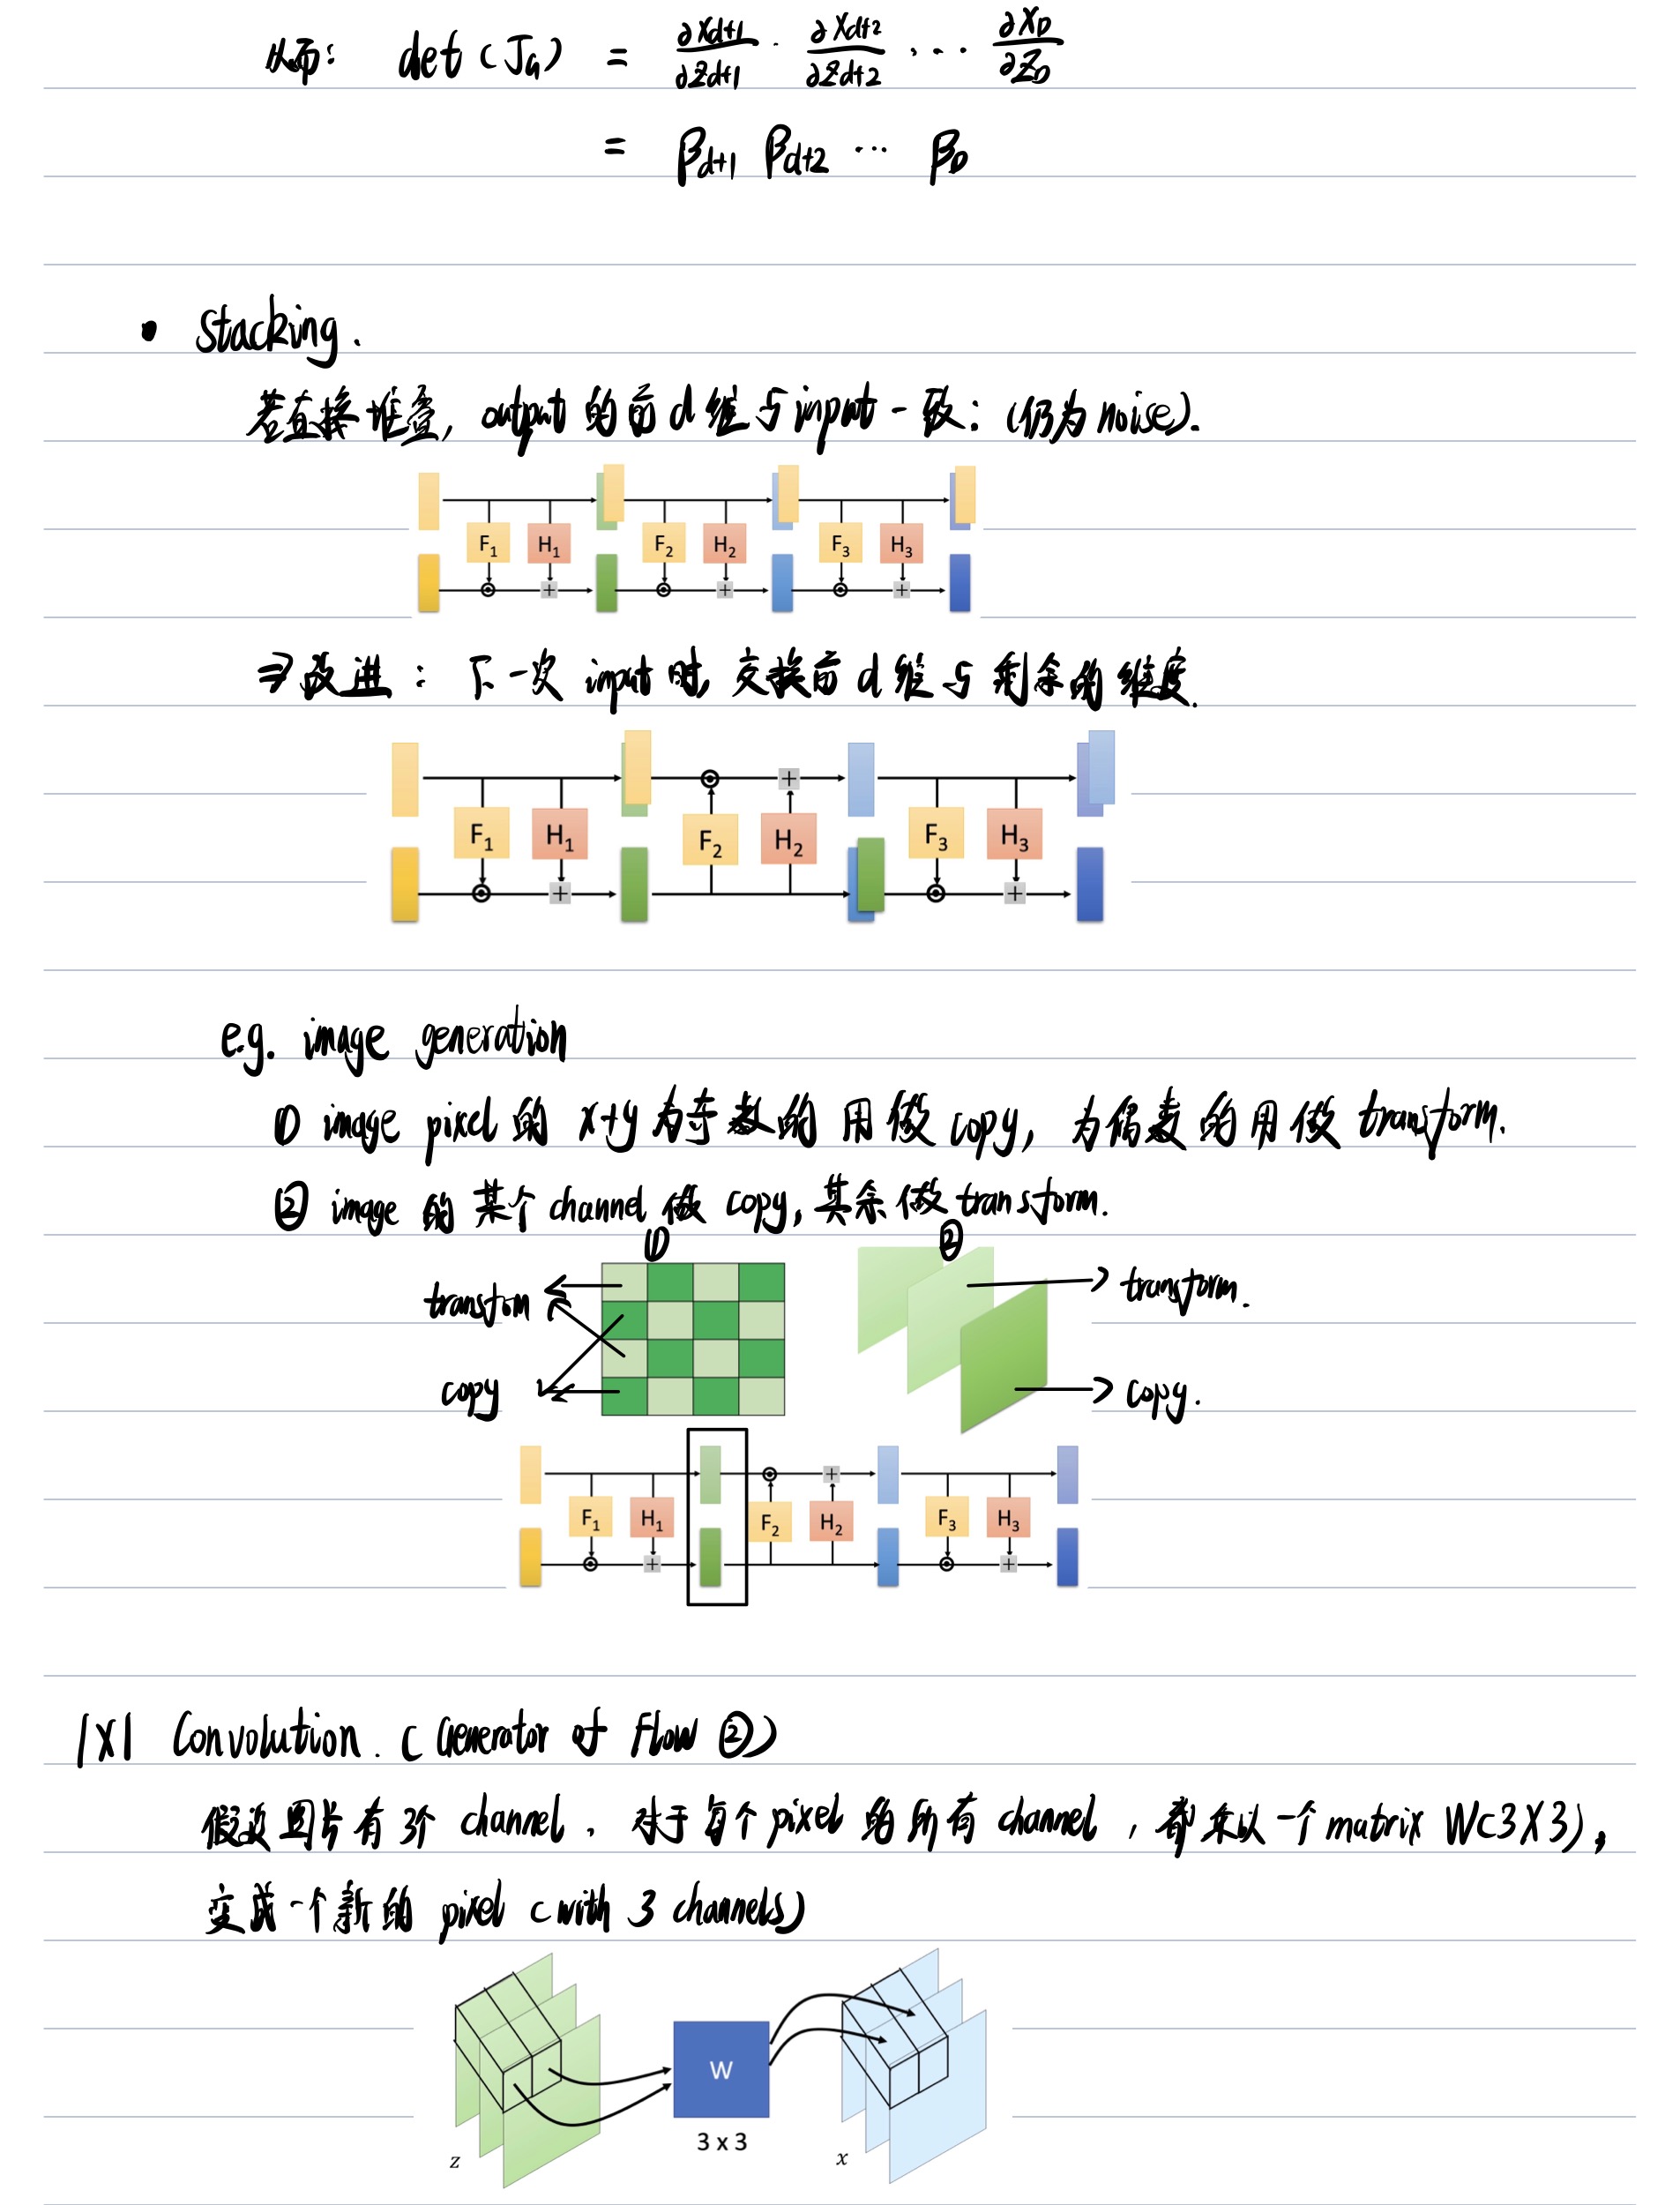 从而: det (J_G) = ∂x_{d+1}/∂z_{d+1} · ∂x_{d+2}/∂z_{d+2} ⋯ ∂x_D/∂z_D
= β_{d+1} β_{d+2} ⋯ β_D
• stacking.
若直接堆叠, output 的前 d 维与 input 一致: (仍为 noise).
F₁ H₁ F₂ H₂ F₃ H₃
⇒ 改进: 下一次 input 时, 交换前 d 维与剩余的维度.
F₁ H₁ F₂ H₂ F₃ H₃
e.g. image generation
① image pixel 的 x+y 为奇数的用做 copy, 为偶数的用做 transform.
② image 的某个 channel 做 copy, 其余做 transform.
① ②
transfom transform.
copy copy.
F₁ H₁ F₂ H₂ F₃ H₃
1X1 Convolution. (Generator of Flow ②)
假设图片有3个 channel, 对于每个 pixel 的所有 channel, 都乘以一个 matrix W(3X3),
变成一个新的 pixel (with 3 channels)
W
3 x 3
z x